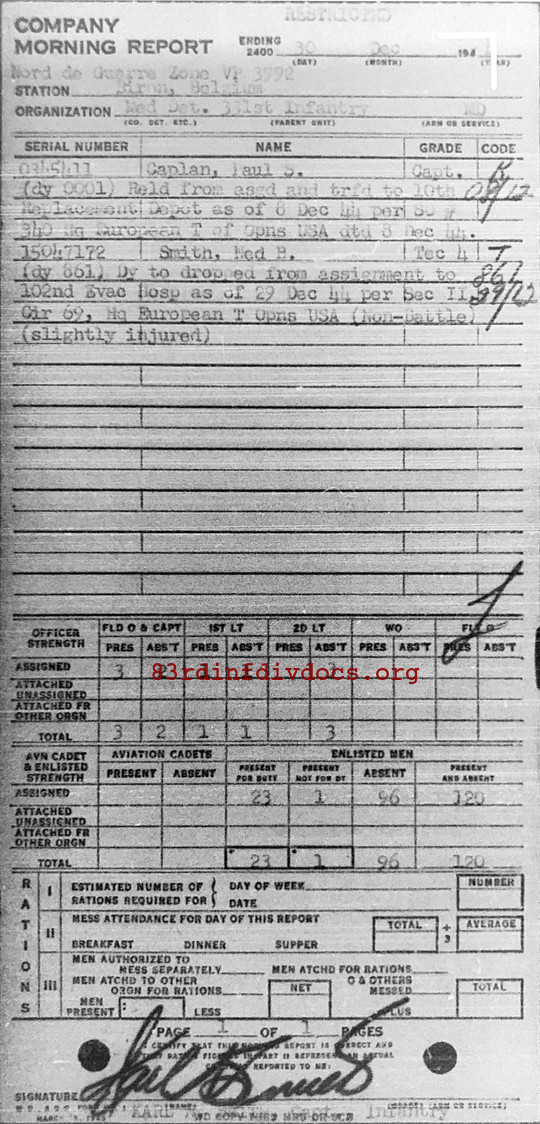 RESTRICTED
COMPANY
MORNING REPORT ENDING 2400 30 Dec 194
(DAY) (MONTH) (YEAR)
Nord de Guerre Zone VP 3792
STATION Biron, Belgium
ORGANIZATION Med Det. 331st Infantry MD
(CO. DET. ETC.) (PARENT UNIT) (ARM OR SERVICE)
SERIAL NUMBER NAME GRADE CODE
0345411 Caplan, Paul S. Capt.
(dy 0001) Reld from asgd and trfd to 10th 08/12
Replacement Depot as of 8 Dec 44 per SO #
340 Hq European T of Opns USA dtd 8 Dec 44.
15047172 Smith, Ned B. Tec 4 T
(dy 861) Dy to dropped from assignment to 861
102nd Evac Hosp as of 29 Dec 44 per Sec II 29/12
Cir 69, Hq European T Opns USA (Non-Battle)
(slightly injured)
OFFICER STRENGTH FLD O & CAPT 1ST LT 2D LT WO FLT O
PRES ABS'T PRES ABS'T PRES ABS'T PRES ABS'T PRES ABS'T
ASSIGNED 3
83rdinfdivdocs.org
ATTACHED UNASSIGNED
ATTACHED FR OTHER ORGN
TOTAL 3 2 1 1 3
AVN CADET & ENLISTED STRENGTH AVIATION CADETS ENLISTED MEN
PRESENT ABSENT PRESENT FOR DUTY PRESENT NOT FOR DY ABSENT PRESENT AND ABSENT
ASSIGNED 23 1 96 120
ATTACHED UNASSIGNED
ATTACHED FR OTHER ORGN
TOTAL 23 1 96 120
RATIONS
I ESTIMATED NUMBER OF RATIONS REQUIRED FOR DAY OF WEEK DATE NUMBER
II MESS ATTENDANCE FOR DAY OF THIS REPORT TOTAL ÷ 3 AVERAGE
BREAKFAST DINNER SUPPER
III MEN AUTHORIZED TO MESS SEPARATELY MEN ATCHD FOR RATIONS
MEN ATCHD TO OTHER ORGN FOR RATIONS NET O & OTHERS MESSED TOTAL
MEN PRESENT LESS PLUS
PAGE 1 OF 1 PAGES
I CERTIFY THAT THIS MORNING REPORT IS CORRECT AND
THAT RATION FIGURES IN PART II REPRESENT AN ACTUAL
REPORTED TO ME:
SIGNATURE
(NAME) (GRADE) (ARM OR SERVICE)
W.D., A.G.O. FORM NO. 1
KARL Capt Infantry
MARCH
WD COPY THRU MRU OR SCU